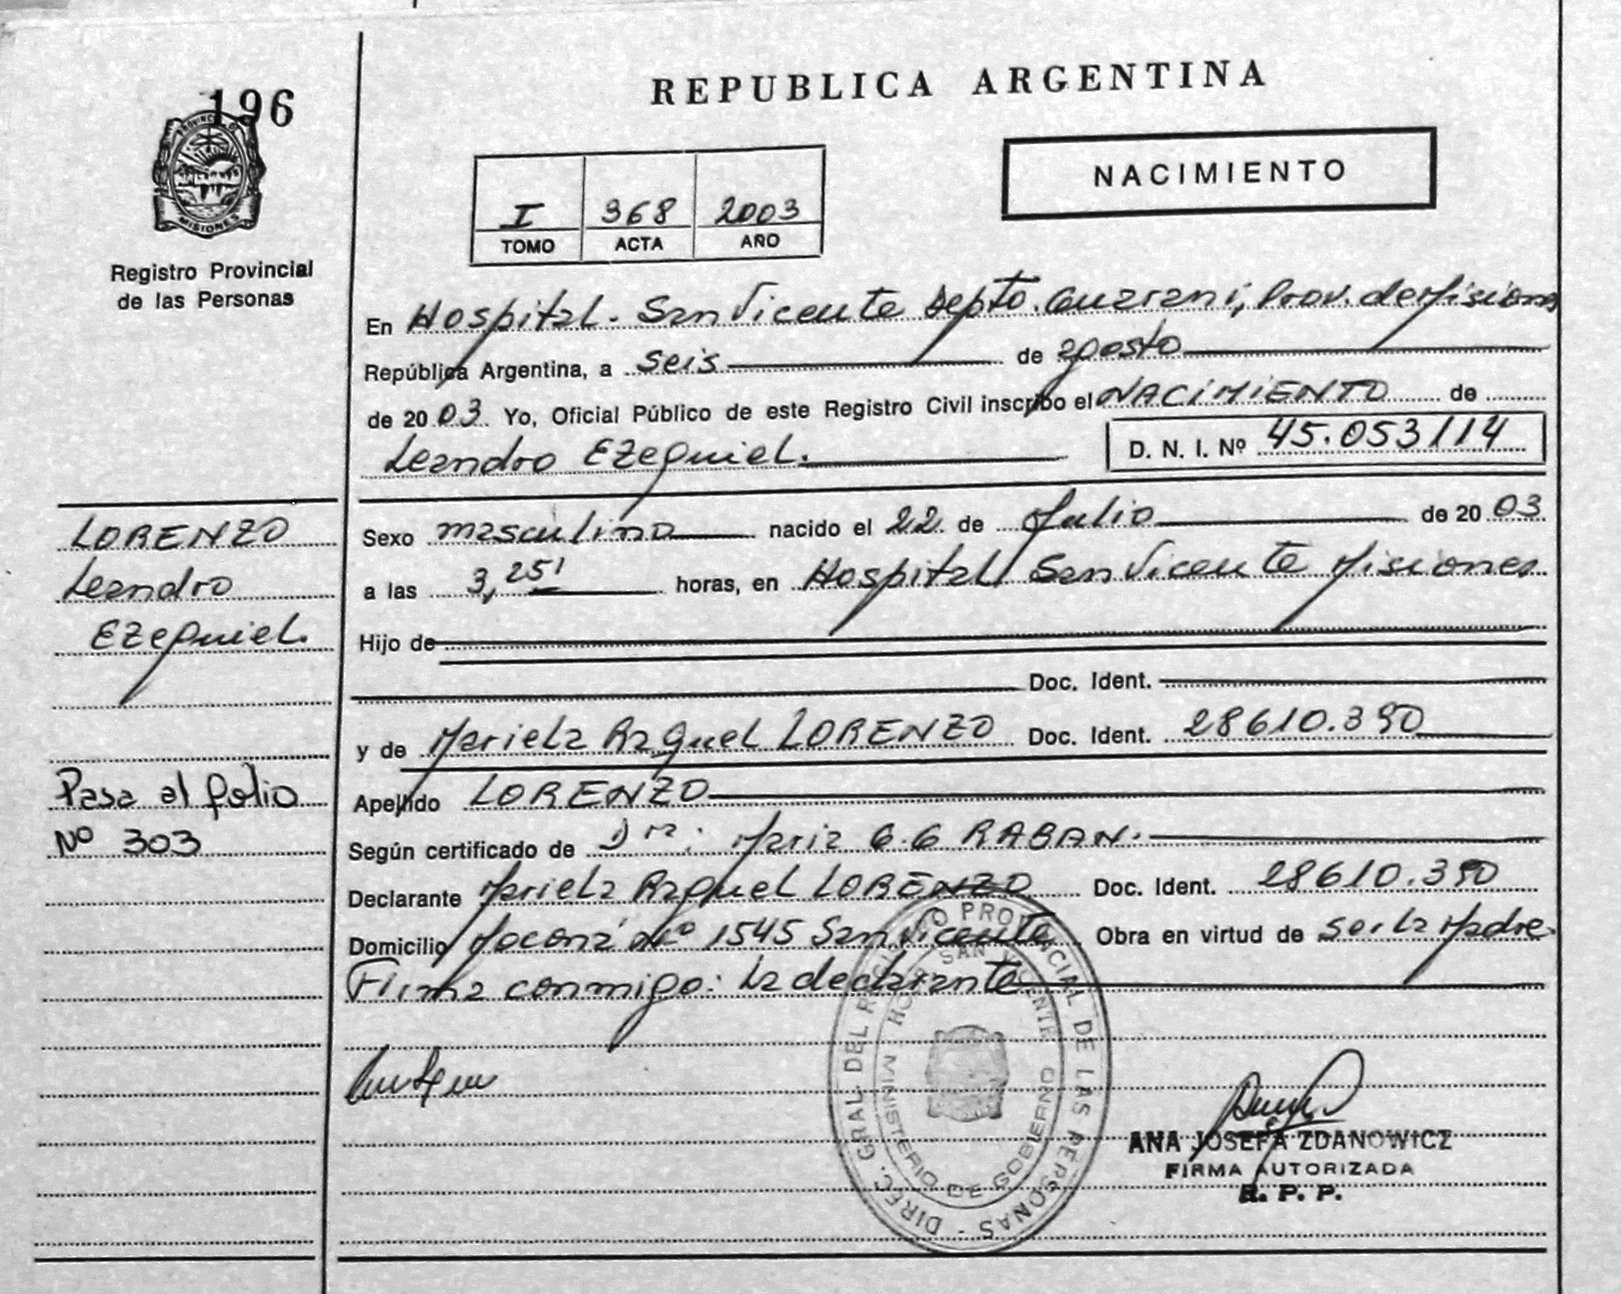 196
PROVINCIA D
MISIONES
Registro Provincial
de las Personas
REPUBLICA ARGENTINA
NACIMIENTO
I 368 2003
TOMO ACTA AÑO
En Hospital. San Vicente Depto. Guaraní, Prov. de Misiones
República Argentina, a seis de agosto
de 2003. Yo, Oficial Público de este Registro Civil inscribo el NACIMIENTO de
Leandro Ezequiel. D. N. I. Nº 45.053114
LORENZO
Leandro
Ezequiel.
Pasa al folio
Nº 303
Sexo masculino nacido el 22 de Julio de 2003
a las 3,25' horas, en Hospital San Vicente Misiones
Hijo de
Doc. Ident.
y de Mariela Raquel LORENZO Doc. Ident. 28610.390
Apellido LORENZO
Según certificado de Dra: Maria G. G RABAN.
Declarante Mariela Raquel LORENZO Doc. Ident. 28610.390
Domicilio Moconá Nº 1545 San Vicente. Obra en virtud de ser la Madre.
Firma conmigo: la declarante
DIREC. GRAL. DEL REGISTRO PROVINCIAL DE LAS PERSONAS -
HOSP. SAN VICENTE
MINISTERIO DE GOBIERNO
ANA JOSEFA ZDANOWICZ
FIRMA AUTORIZADA
R. P. P.